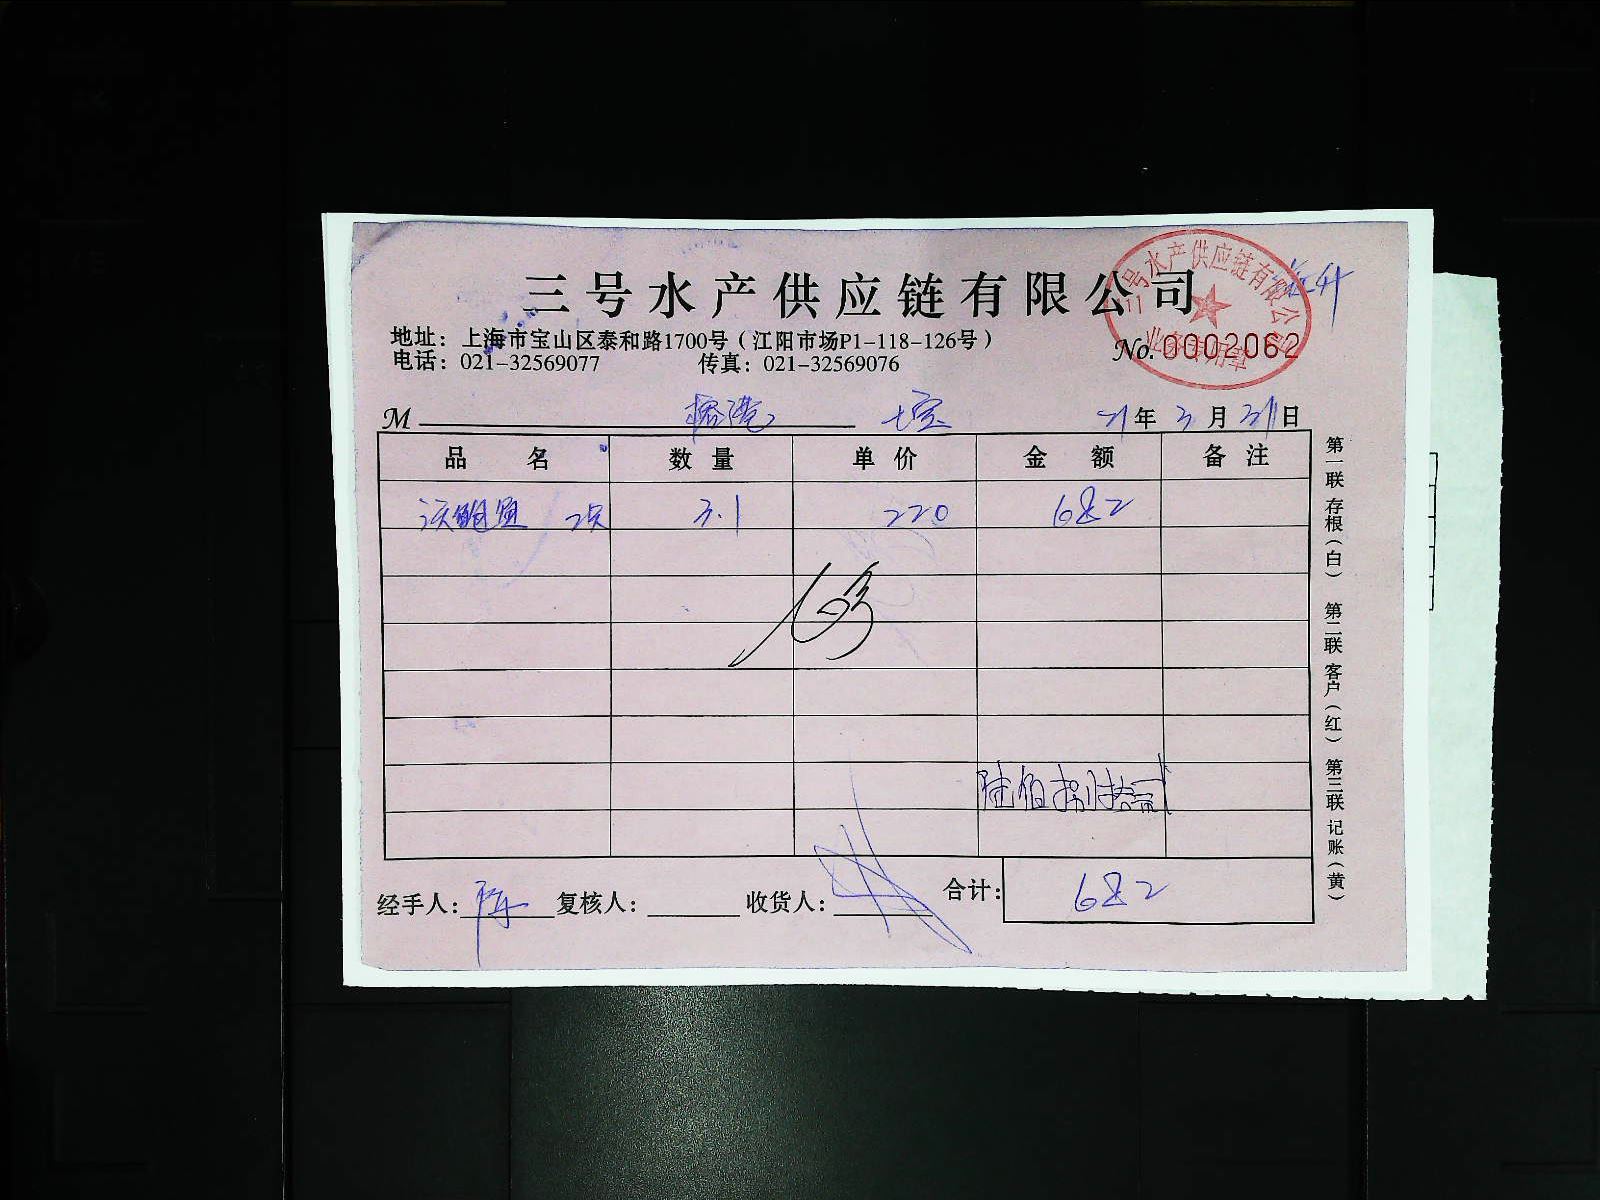 三号水产供应链有限公司
地址：上海市宝山区泰和路1700号（江阳市场P1-118-126号）
电话：021-32569077 传真：021-32569076
No. 0002062
三号水产供应链有限公司
业务专用章
M 七宝 21年3月31日
品名 数量 单价 金额 备注
3.1 220 682
陆佰捌拾贰
经手人：陈 复核人： 收货人： 合计：682
第一联 存根（白） 第二联 客户（红） 第三联 记账（黄）